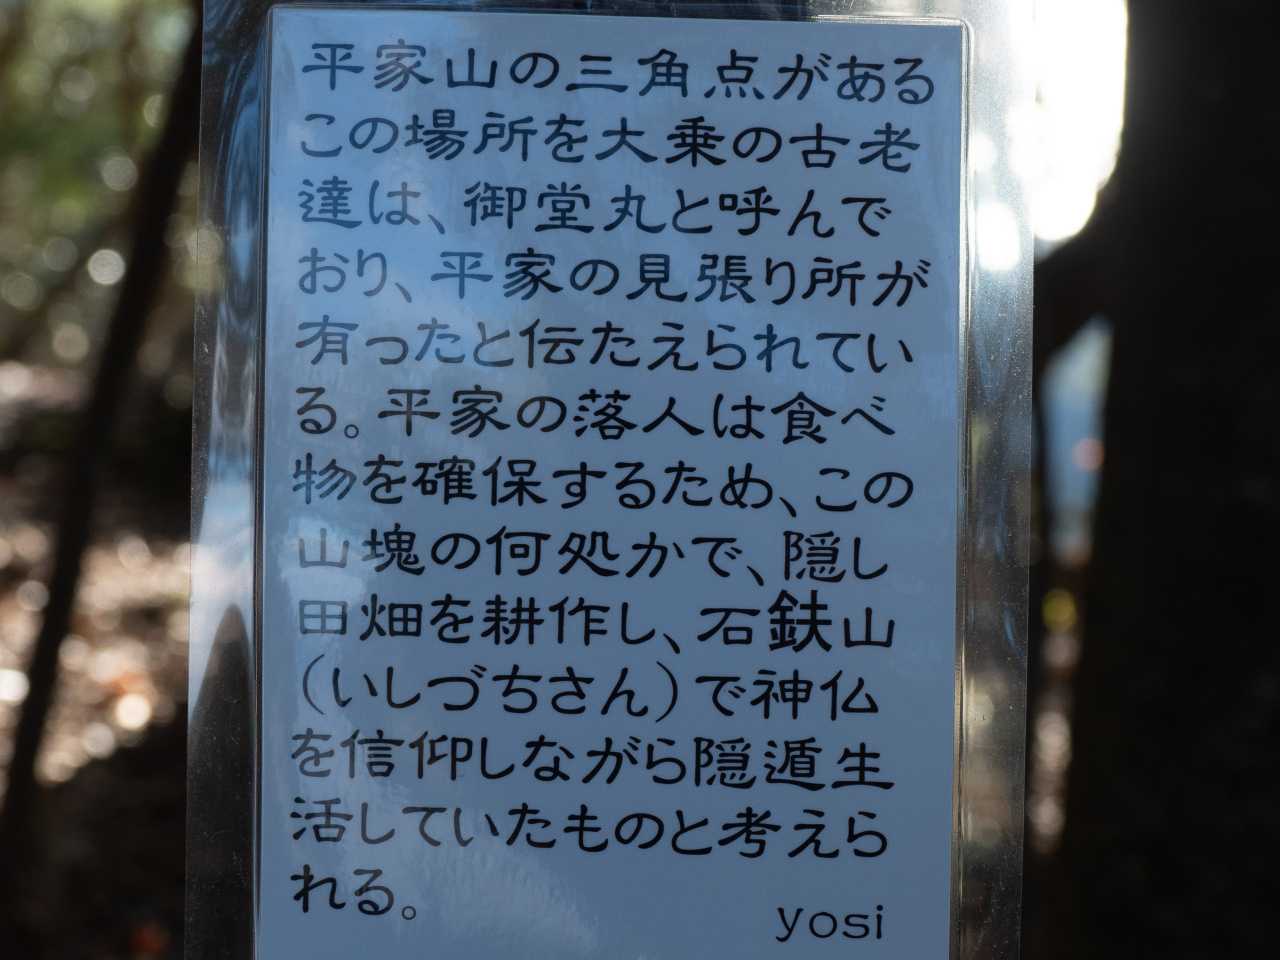 平家山の三角点がある
この場所を大乗の古老
達は、御堂丸と呼んで
おり、平家の見張り所が
有ったと伝えられてい
る。平家の落人は食べ
物を確保するため、この
山塊の何処かで、隠し
田畑を耕作し、石鈇山
（いしづちさん）で神仏
を信仰しながら隠遁生
活していたものと考えら
れる。
yosi